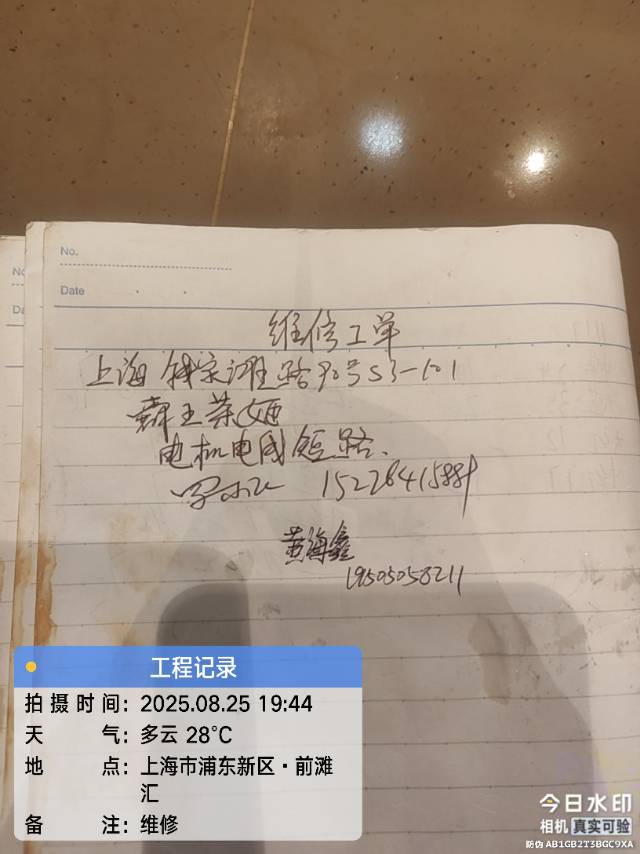 No.
Date
维修工单
上海钱家滩路90号S3-101
霸王茶姬
电机电线短路、
15228415889
黄海鑫
19505058211
工程记录
拍摄时间：2025.08.25 19:44
天气：多云 28°C
地点：上海市浦东新区·前滩
汇
备注：维修
今日水印
相机 真实可验
防伪 AB1GB2T3BGC9XA